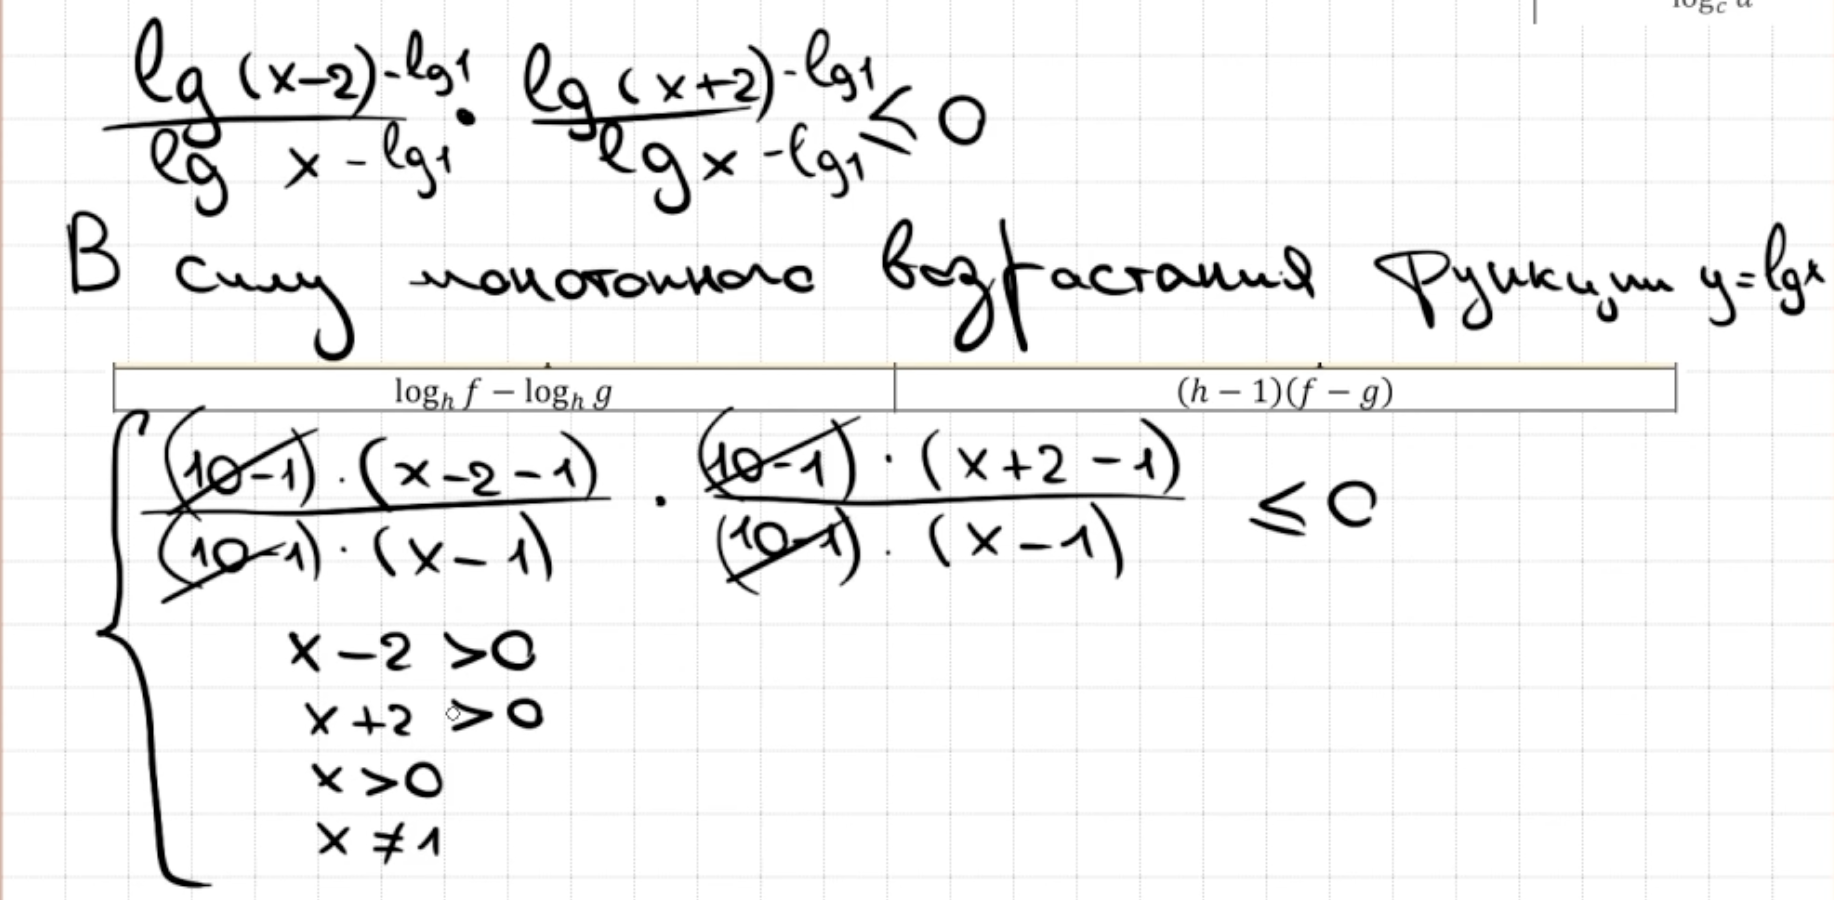 log_c a
lg (x-2) - lg1 / lg x - lg1 · lg (x+2) - lg1 / lg x - lg1 ≤ 0
В силу монотонного возрастания функции y = lgx
log_h f − log_h g (h − 1)(f − g)
(10-1) · (x-2-1) / (10-1) · (x-1) · (10-1) · (x+2-1) / (10-1) · (x-1) ≤ 0
x-2 >0
x+2 >0
x >0
x ≠ 1